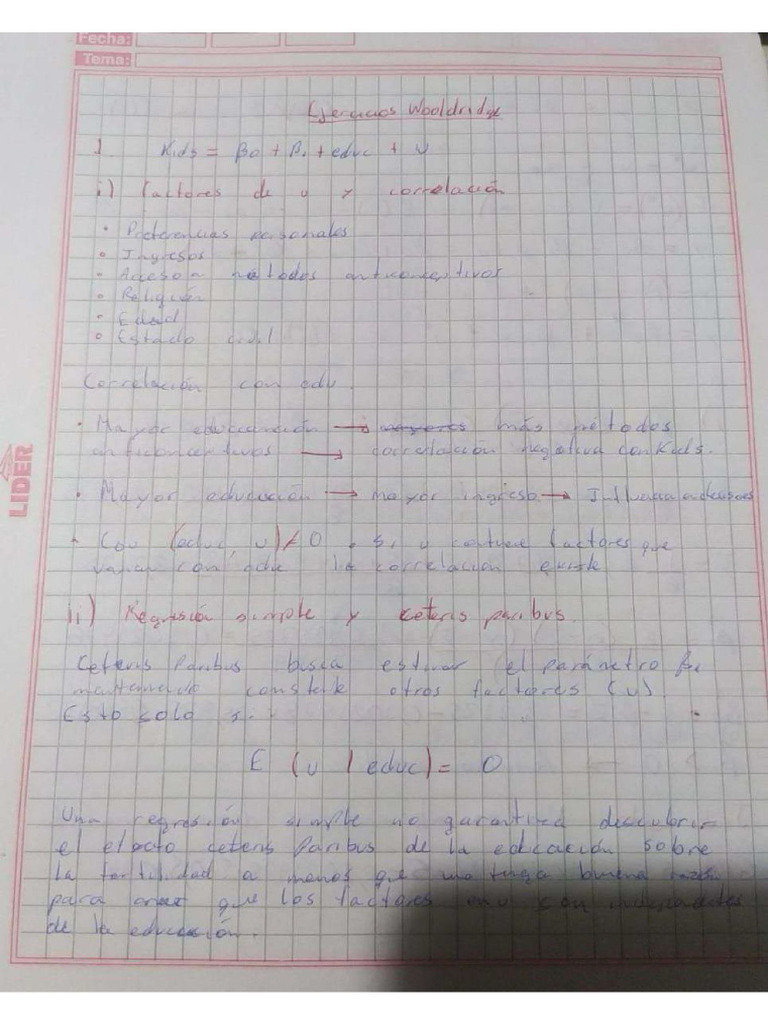 Fecha:
Tema:
Ejercicios Wooldridge
1. Kids = β0 + β1 + educ + u
i) Factores de u y correlación
• Preferencias personales
• Ingresos
• Acceso a métodos anticonceptivos
• Religión
• Edad
• Estado civil
Correlación con edu.
• Mayor → más métodos
anticonceptivos → correlación negativa con Kids.
• Mayor educación → mayor ingreso → Influencia
• Cov (educ, u) ≠ 0 . Si u contiene factores que
varian con edu la correlacion existe
ii) Regresión simple y ceteris paribus
Ceteris Paribus busca estimar el parámetro β1
manteniendo constante otros factores (u)
Esto solo si.
E (u | educ) = 0
Una regresión simple no garantiza descubrir
el efecto ceteris Paribus de la educación sobre
la fertilidad a menos que uno tenga buena razón
para creer que los factores en u son independientes
de la educación.
LIDER